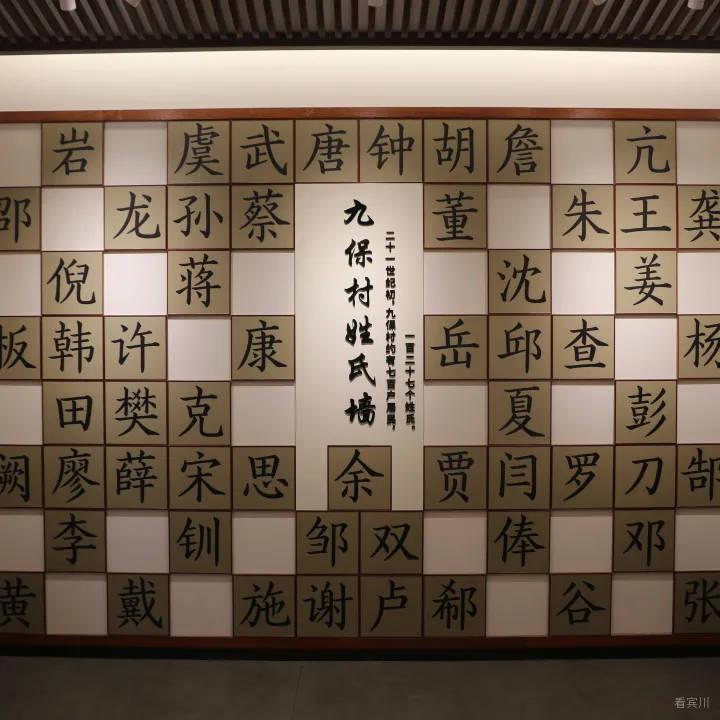 岩 虞 武 唐 钟 胡 詹 亢
邵 龙 孙 蔡 董 朱 王 龚
倪 蒋 沈 姜
板 韩 许 康 岳 邱 查 杨
田 樊 克 夏 彭
阙 廖 薛 宋 思 余 贾 闫 罗 刀 郜
李 钏 邹 双 俸 邓
黄 戴 施 谢 卢 郗 谷 张
九保村姓氏墙
二十一世纪初，九保村约有七百户居民，
一百二十七个姓氏。
看宾川